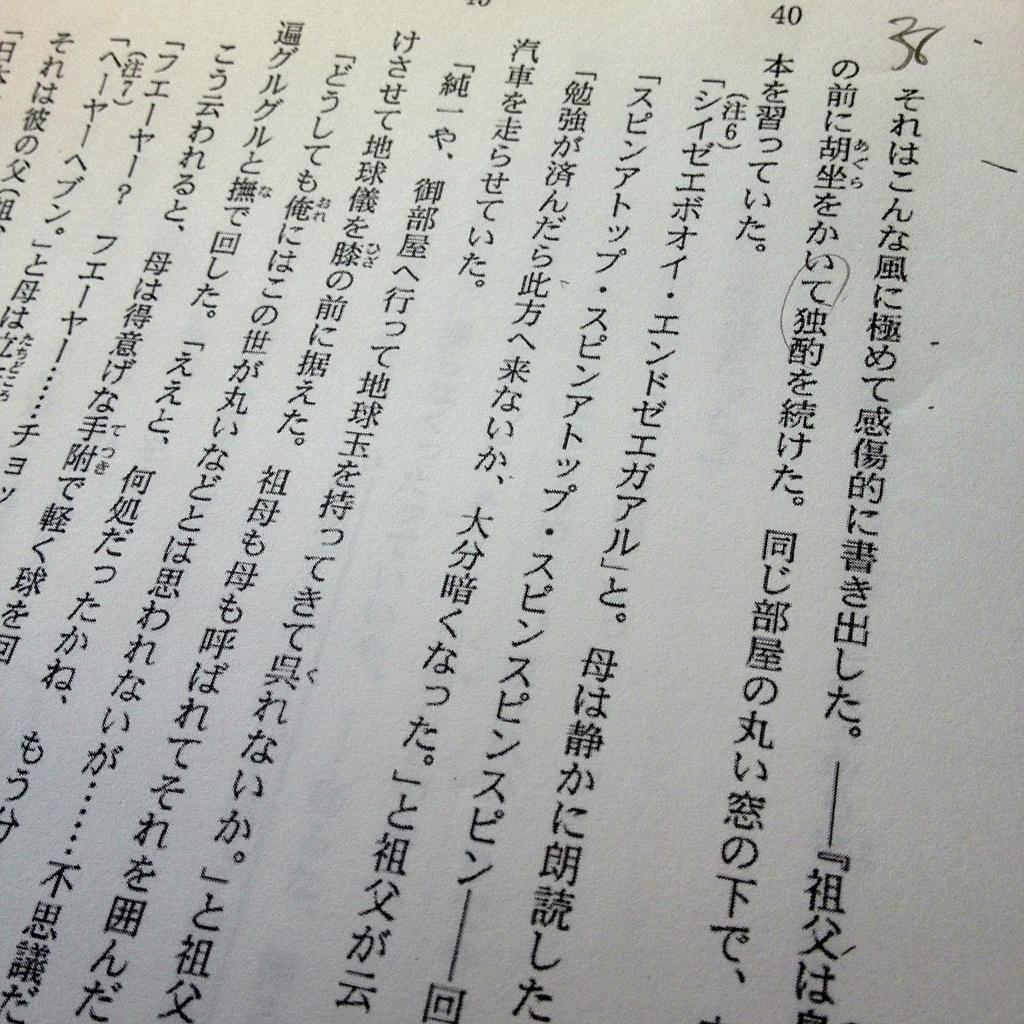 40
36
それはこんな風に極めて感傷的に書き出した。――『祖父は
の前に胡坐をかいて独酌を続けた。同じ部屋の丸い窓の下で、
本を習っていた。
(注6)
「シイゼエボオイ・エンドゼエガアル」と。母は静かに朗読した
「スピンアトップ・スピンアトップ・スピンスピンスピン――回
「勉強が済んだら此方へ来ないか、大分暗くなった。」と祖父が云
汽車を走らせていた。
「純一や、御部屋へ行って地球玉を持ってきて呉れないか。」と祖父
けさせて地球儀を膝の前に据えた。祖母も母も呼ばれてそれを囲んだ
「どうしても俺にはこの世が丸いなどとは思われないが……不思議だ
遍グルグルと撫で回した。「ええと、何処だったかね、もう
こう云われると、母は得意げな手附で軽く球を回
「フエーヤー? フエーヤー……チョッ
(注7)
「ヘーヤーヘブン。」と母は立
それは彼の父(祖
「日本